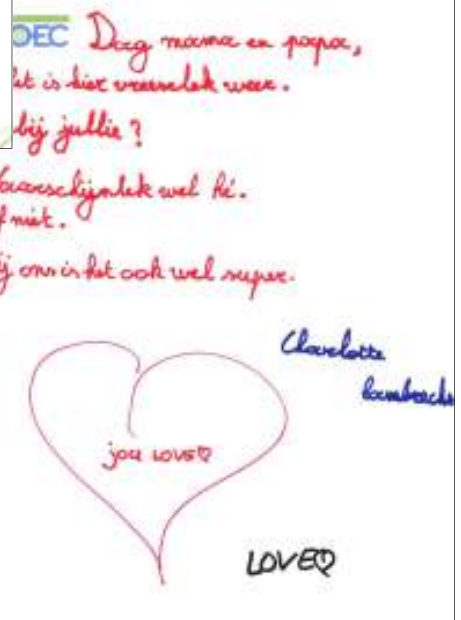 OEC
Dag mama en papa,
et is hier vreeselek weer.
bij jullie?
aarschijnlek wel hé.
f niet.
ij ons is het ook wel super.
Charlotte
jou LOVE♡
LOVE♡